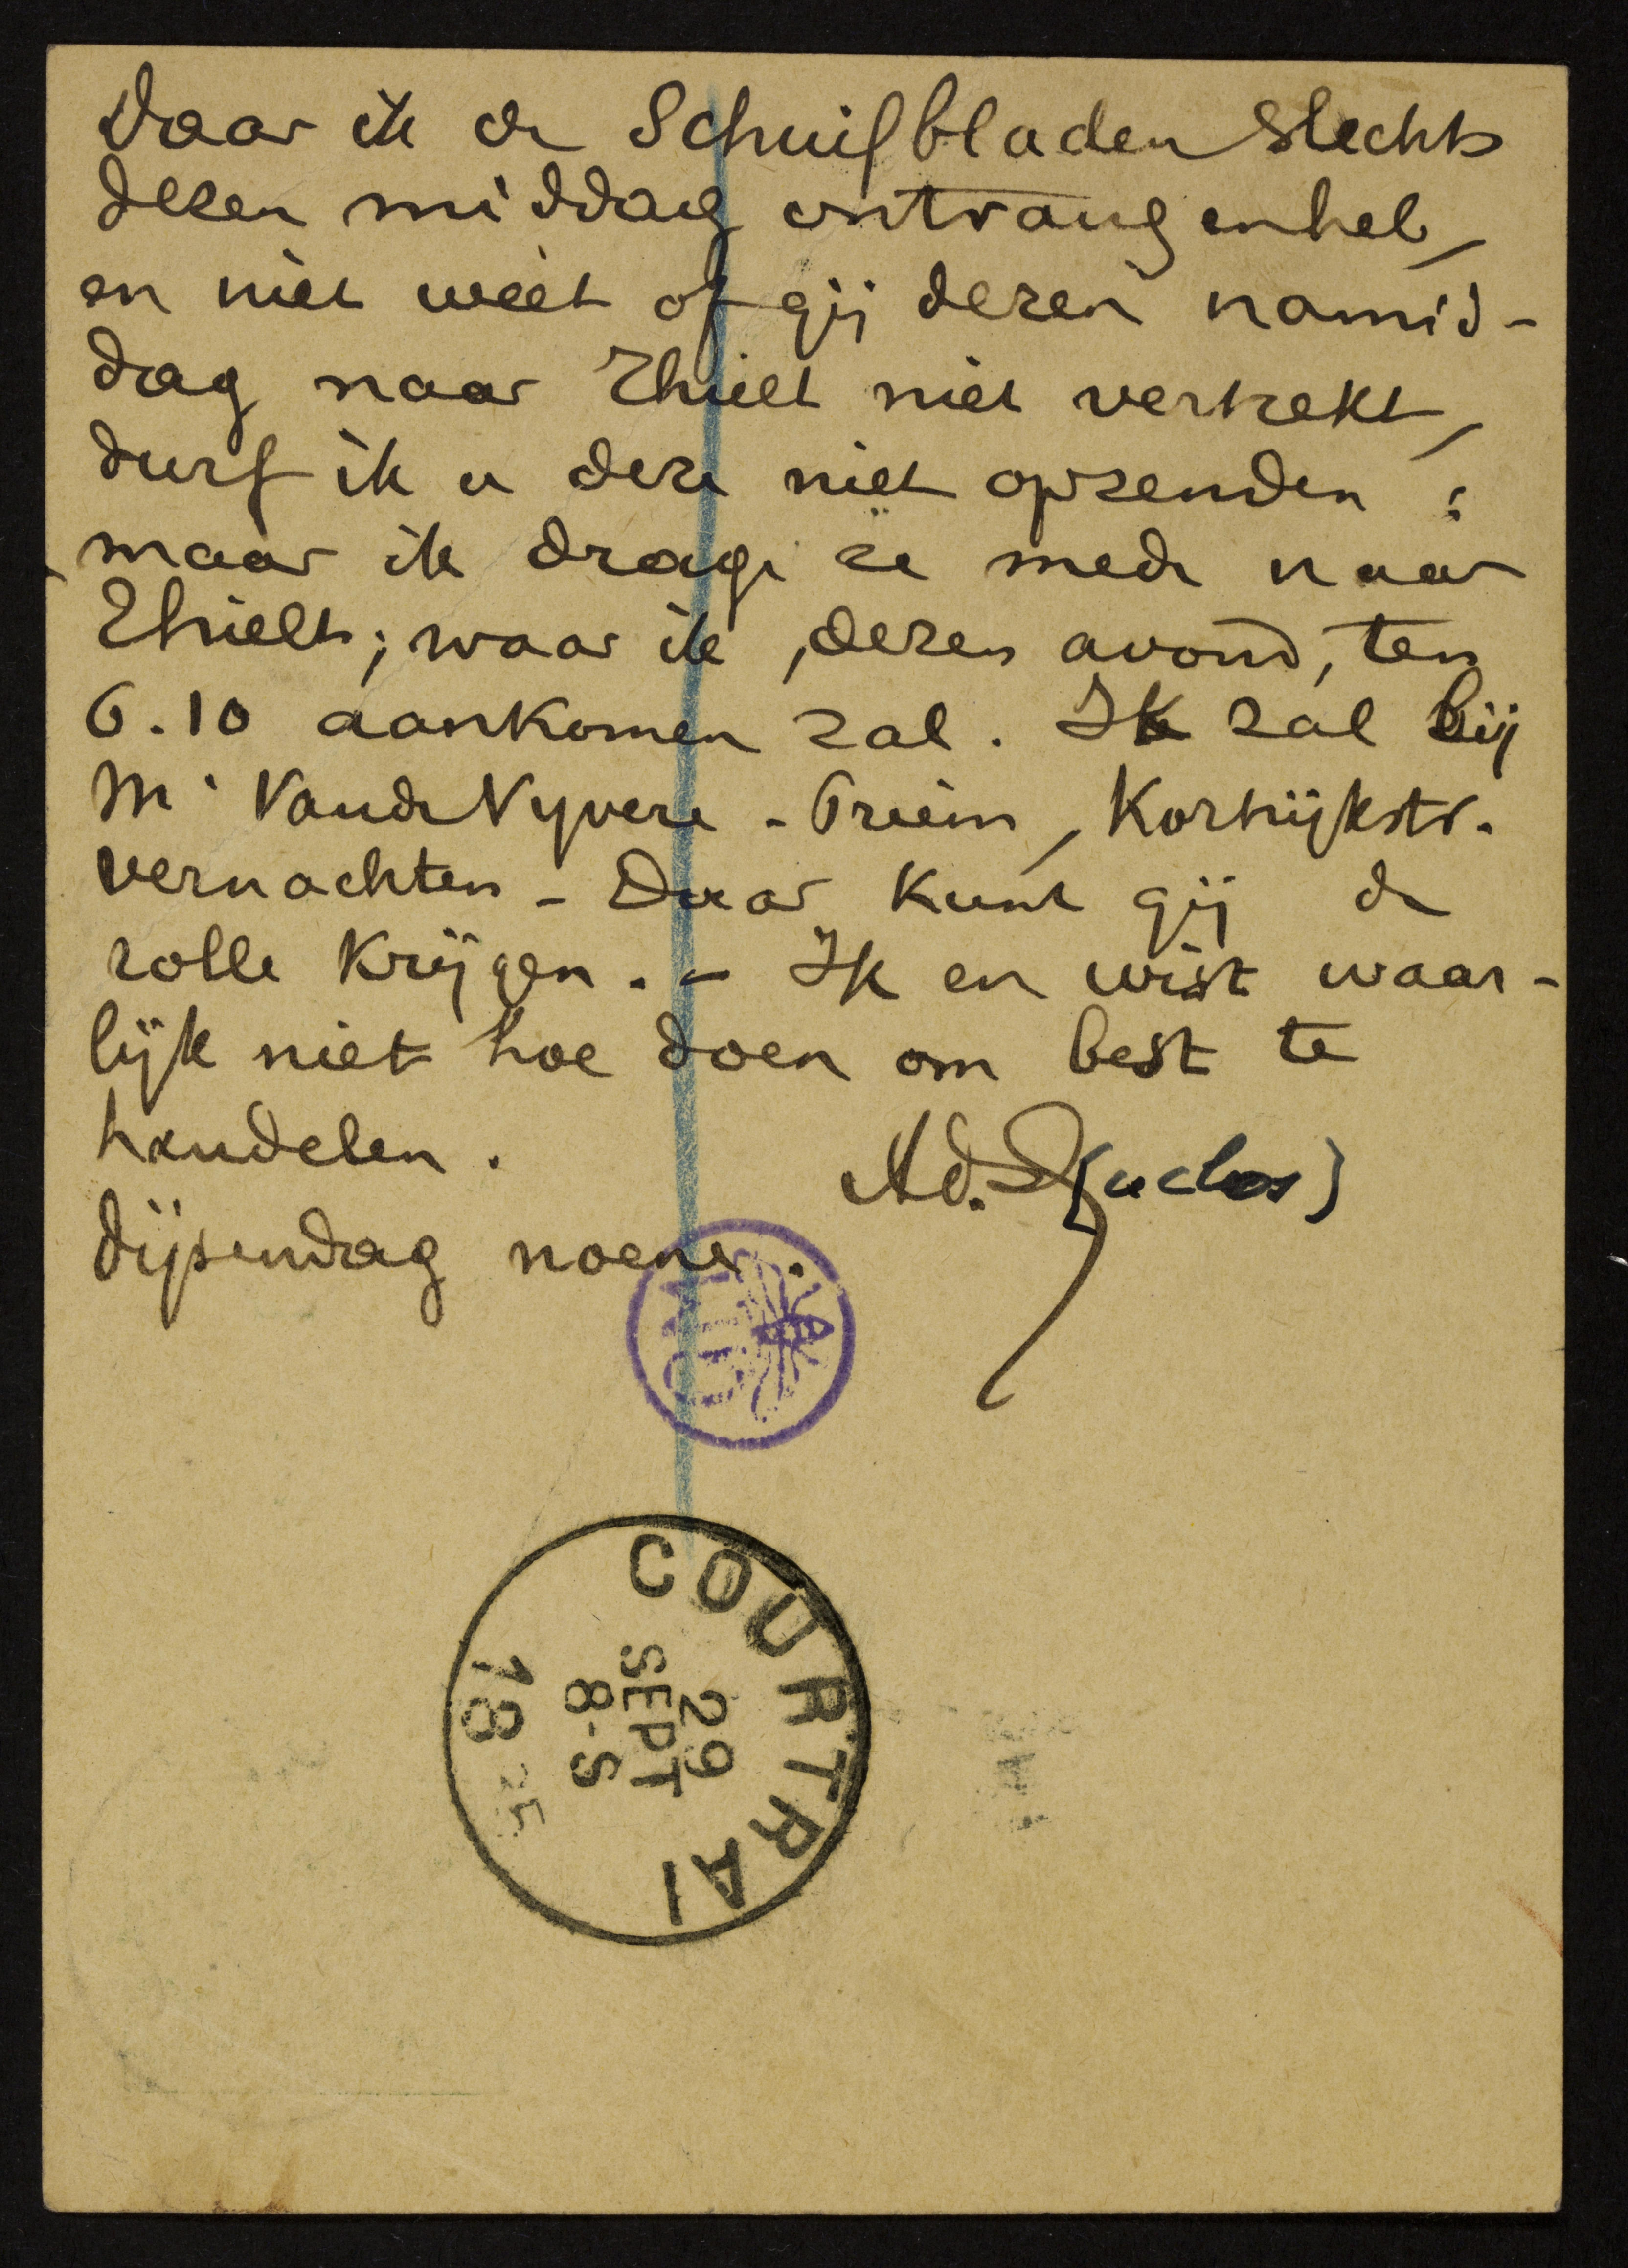 Daar ik de Schuifbladen slechts
dezen middag ontvangen heb,
en niet weet of gij dezen namid-
dag naar Thielt niet vertrekt,
durf ik u deze niet opzenden :
maar ik drage ze mede naar
Thielt; waar ik, dezen avond, ten
6.10 aankomen zal. Ik zal bij
Mr Vande Vyvere - Priem, Kortrijkstr.
vernachten - Daar kunt gij de
rolle krijgen. - Ik en wist waar-
lijk niet hoe doen om best te
handelen.
Ad. D(uclos)
dijsendag noene.
COURTRAI
29
SEPT
8-S
18